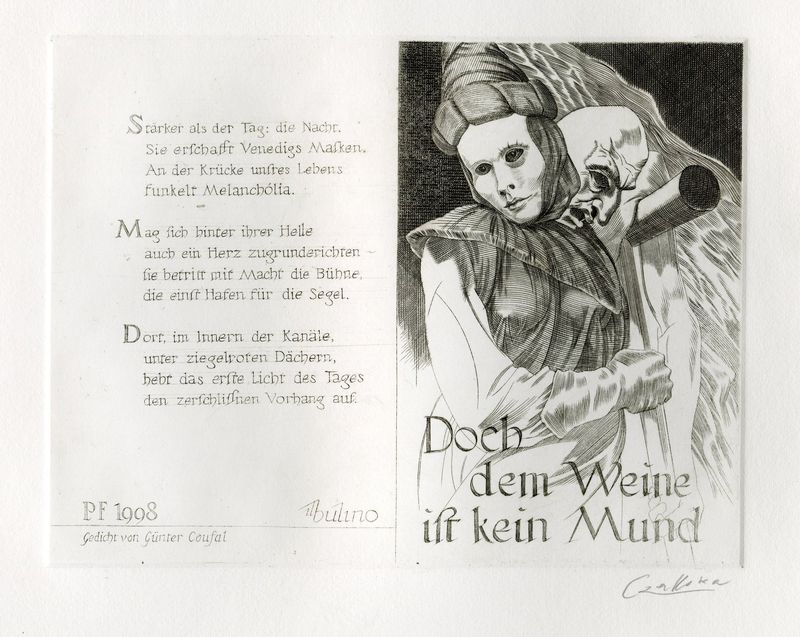 Stärker als der Tag: die Nacht.
Sie erſchafft Venedigs Maſken.
An der Krücke unſres Lebens
funkelt Melanchólia.
Mag ſich hinter ihrer Helle
auch ein Herz zugrunderichten –
ſie betritt mit Macht die Bühne,
die einſt Hafen für die Segel.
Dort, im Innern der Kanäle,
unter ziegelroten Dächern,
hebt das erſte Licht des Tages
den zerſchliſſnen Vorhang auf.
PF 1998
il bulino
Gedicht von Günter Coufal
Doch
dem Weine
iſt kein Mund